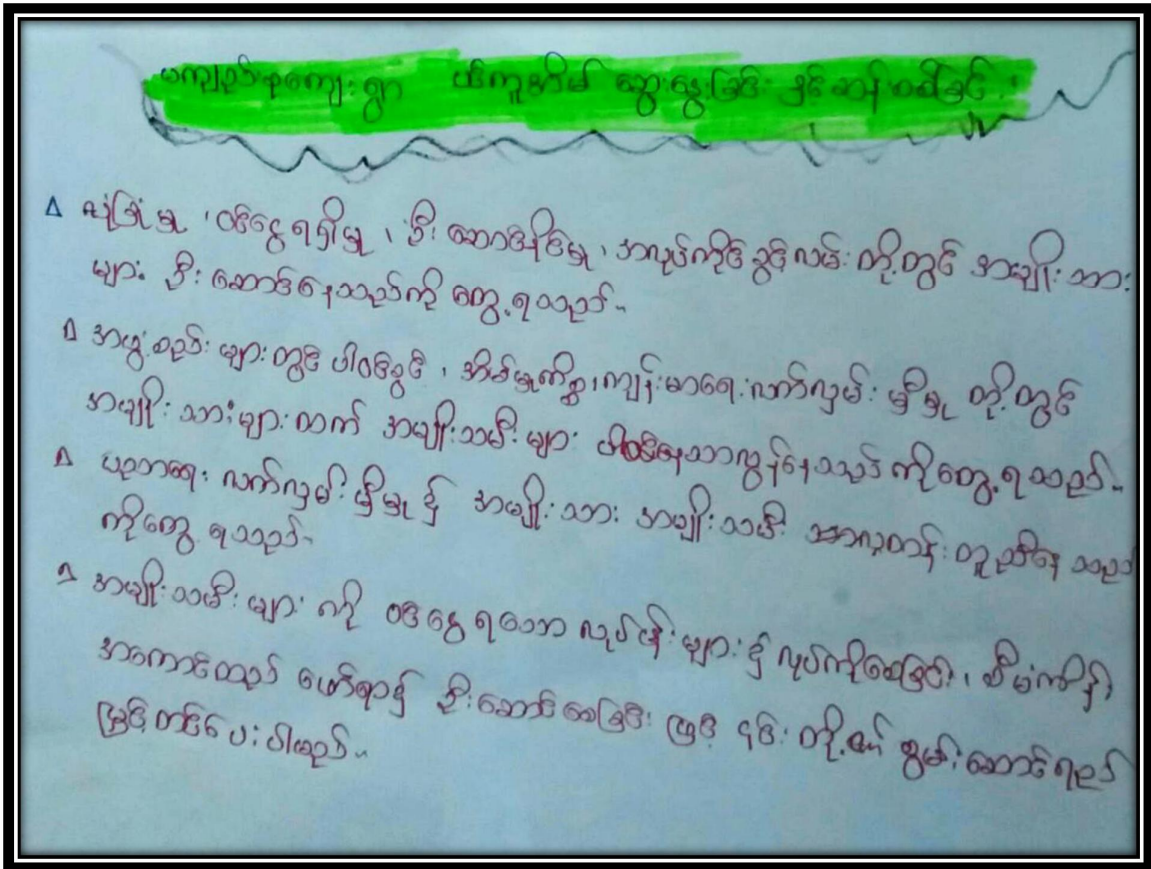 မကျည်းစုကျေးရွာ ယ်ကူအိမ် ဆွေးနွေးခြင်း နှင့်ဆန်းစစ်ခြင်း
လုံခြုံမှု ၊ ဝင်ငွေရရှိမှု ၊ ဦးဆောင်နိုင်မှု ၊ အလုပ်ကိုင်ခွင့်လမ်းတို့တွင် အမျိုးသား
များ ဦးဆောင်နေသည်ကို တွေ့ရသည်။
အဖွဲ့စည်းများတွင် ပါဝင်ခွင့် ၊ အိမ်မှုကိစ္စ ၊ ကျန်းမာရေးလက်လှမ်းမှီမှု တို့တွင်
အမျိုးသားများထက် အမျိုးသမီးများ ပါဝင်နေသာလွန်နေသည် ကိုတွေ့ရသည်။
ပညာရေး လက်လှမ်းမှီမှု ၌ အမျိုးသား အမျိုးသမီး အလားတန်းတူညီနေသည်
ကိုတွေ့ရသည်။
အမျိုးသမီးများ ကို ဝင်ငွေရသော လုပ်ငန်းများ ၌ လုပ်ကိုင်စေခြင်း ၊ စီမံကိန်း
အကောင်ထည် ဖော်ရာ၌ ဦးဆောင်စေခြင်း ဖြင့် ၎င်းတို့၏ စွမ်းဆောင်ရည်
မြှင့်တင်ပေးပါမည်။